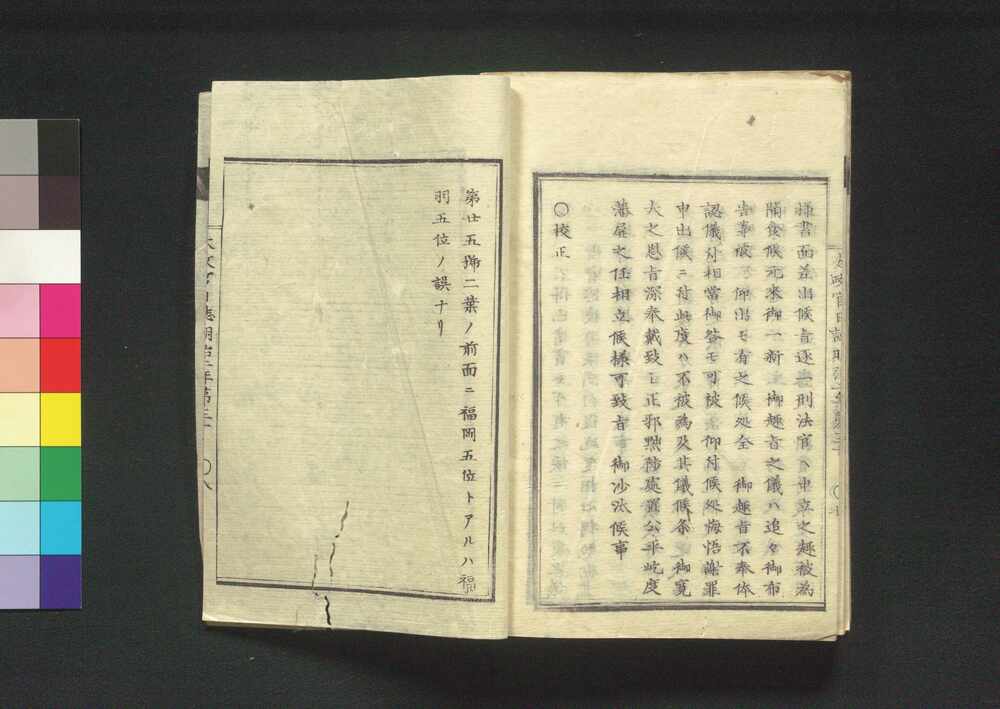 様書面差出候旨逐一刑法官ヘ申立之趣被為
聞食候元来御一新之御趣旨之儀ハ追々御布
告等被 仰出モ有之候処全 御趣旨不奉体
認儀ニ付相當御答モ可被 仰付候処悔悟謝罪
申出候ニ付此度ハ不被為及其儀候条 御寛
大之恩旨深奉戴致シ正邪黙陟處置公平屹度
藩屏之任相立候様可致旨 御沙汰候事
○校正
第廿五號二葉ノ前面ニ福岡五位トアルハ福
羽五位ノ誤ナリ